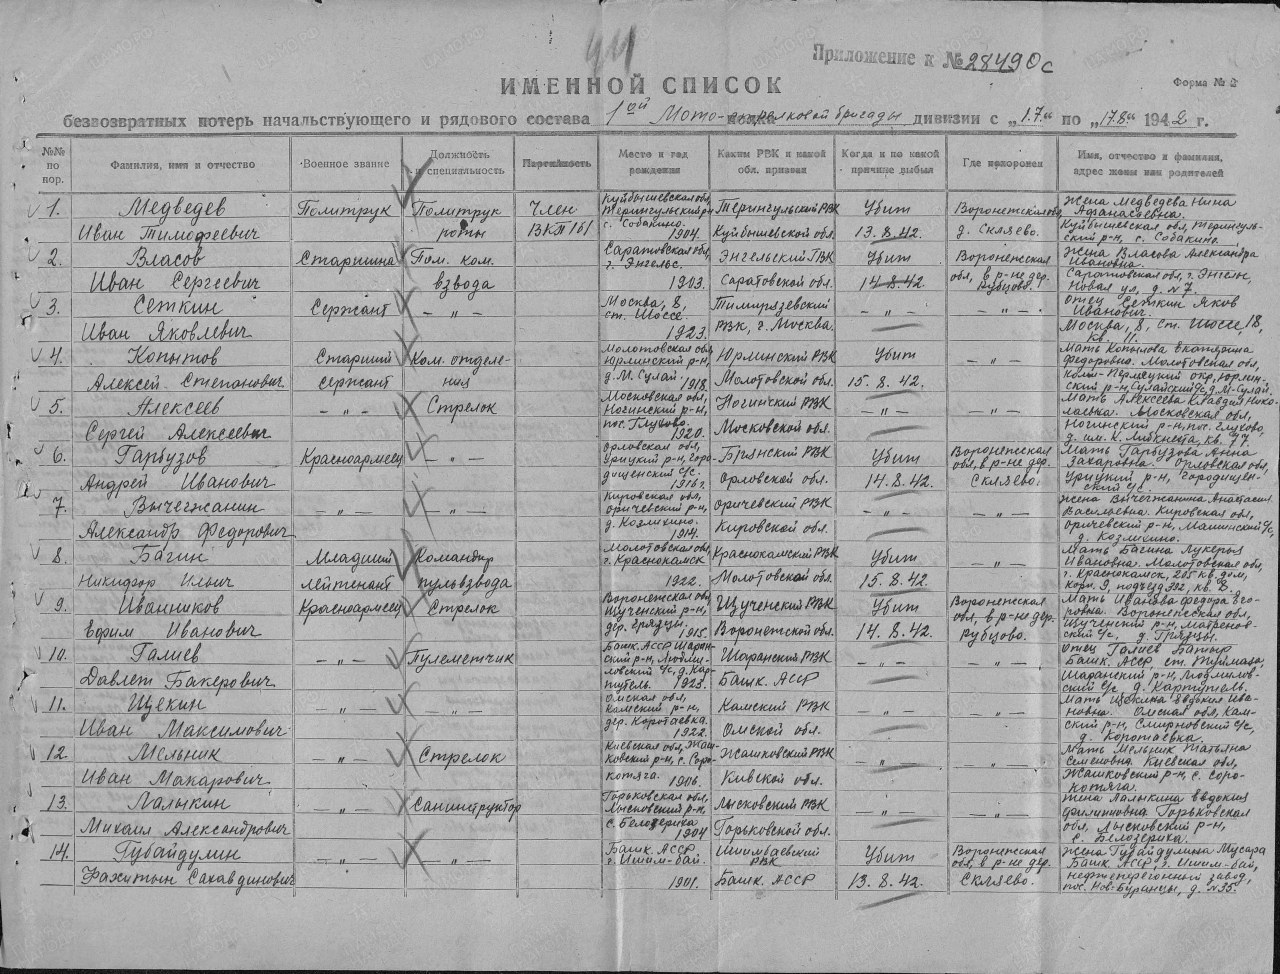 Приложение к № 28490с
ИМЕННОЙ СПИСОК
Форма № 2
безвозвратных потерь начальствующего и рядового состава 1ой Мото-стрелковой бригады дивизии с „1.7.“ по „17.8“ 1942 г.
№№ по пор. Фамилия, имя и отчество Военное звание Должность и специальность Партийность Место и год рождения Каким РВК и какой обл. призван Когда и по какой причине выбыл Где похоронен Имя, отчество и фамилия, адрес жены или родителей
1. Медведев Иван Тимофеевич Политрук Политрук роты Член ВКП(б) Куйбышевская обл, Теренгульский р-н с. Собакино. 1904. Теренгульский РВК Куйбышевской обл. Убит 13.8.42. Воронежская обл д. Скляево. Жена Медведева Нина Афанасьевна. Куйбышевская обл, Теренгульский р-н, с. Собакино.
2. Власов Иван Сергеевич Старшина Пом. ком. взвода Саратовская обл, г. Энгельс. 1903. Энгельский ГВК Саратовской обл. Убит 14.8.42. Воронежская обл, в р-не дер. Рубцово. Жена Власова Александра Ивановна. Саратовская обл, г. Энгельс, Новая ул, д. №7.
3. Сеткин Иван Яковлевич Сержант — „ — Москва, 8, ст. Шоссе. 1923. Тимирязевский РВК, г. Москва. — „ — — „ — Отец Сеткин Яков Иванович. Москва, 8, ст. Шоссе, 18, кв. 11.
4. Копытов Алексей Степанович Старший сержант Ком. отделения Молотовская обл, Юрлинский р-н, д. М. Сулай. 1918. Юрлинский РВК Молотовской обл. Убит 15.8.42. — „ — Мать Копылова Екатерина Федоровна. Молотовская обл, Коми-Пермяцкий окр, Юрлинский р-н, Сулайский с/с, д. М-Сулай.
5. Алексеев Сергей Алексеевич — „ — Стрелок Московская обл, Ногинский р-н, пос. Глухово. 1920. Ногинский РВК Московской обл. — „ — — „ — Мать Алексеева Клавдия Николаевна. Московская обл, Ногинский р-н, пос. Глухово, д. им. К. Либкнехта, кв. 77.
6. Гарбузов Андрей Иванович Красноармеец — „ — Орловская обл, Урицкий р-н, Городищенский с/с. 1916 г. Брянский РВК Орловской обл. Убит 14.8.42. Воронежская обл, в р-не дер. Скляево. Мать Гарбузова Анна Захаровна. Орловская обл, Урицкий р-н, Городищенский с/с.
7. Вычегжанин Александр Федорович — „ — — „ — Кировская обл, Оричевский р-н, д. Козлихино. 1914. Оричевский РВК Кировской обл. — „ — — „ — Жена Вычегжанина Анастасия Васильевна. Кировская обл, Оричевский р-н, с/с, д. Козлихино.
8. Багин Никифор Ильич Младший лейтенант Командир пульвзвода Молотовская обл, г. Краснокамск 1922. Краснокамский РВК Молотовской обл. Убит 15.8.42. — „ — Мать Багина Лукерья Ивановна. Молотовская обл, г. Краснокамск, кв. 
9. Иванников Ефим Иванович Красноармеец Стрелок Воронежская обл, Щученский р-н, дер. Грязцы. 1915. Щученский РВК Воронежской обл. Убит 14.8.42. Воронежская обл, в р-не дер. Рубцово. Мать Иванова Федора Егоровна. Воронежская обл, Щученский р-н, Матреновский с/с, д. Грязцы.
10. Галиев Давлет Бакерович — „ — Пулеметчик Башк. АССР Шаранский р-н, 1923. Шаранский РВК Башк. АССР — „ — — „ — Отец Галиев Батыр Башк. АССР, ст. Туймаза, Шаранский р-н, с/с д. Картупель.
11. Щекин Иван Максимович — „ — — „ — Омская обл, Камский р-н, дер. Коротаевка. 1922. Камский РВК Омской обл. — „ — — „ — Мать Щекина Евдокия Ивановна. Омская обл, Камский р-н, Смирновский с/с, д. Коротаевка.
12. Мельник Иван Макарович — „ — Стрелок Киевская обл, Жашковский р-н, с. Сорокотяга. 1906. Жашковский РВК Киевской обл. — „ — — „ — Мать Мельник Татьяна Семеновна. Киевская обл, Жашковский р-н, с. Сорокотяга.
13. Лалыкин Михаил Александрович — „ — Санинструктор Горьковская обл, Лысковский р-н, с. Белозериха 1904 Лысковский РВК Горьковской обл. — „ — — „ — Жена Лалыкина Евдокия Филипповна Горьковская обл, Лысковский р-н, с. Белозериха.
14. Губайдулин Фахитын Сахавдинович — „ — — „ — Башк. АССР г. Ишим-бай. 1901. Ишимбаевский РВК Башк. АССР Убит 13.8.42. Воронежская обл, в р-не дер. Скляево. Жена Губайдулина Мусара Башк. АССР, г. Ишим-бай, нефтеперегонный завод, пос. Нов-Буранцы, д. №35.